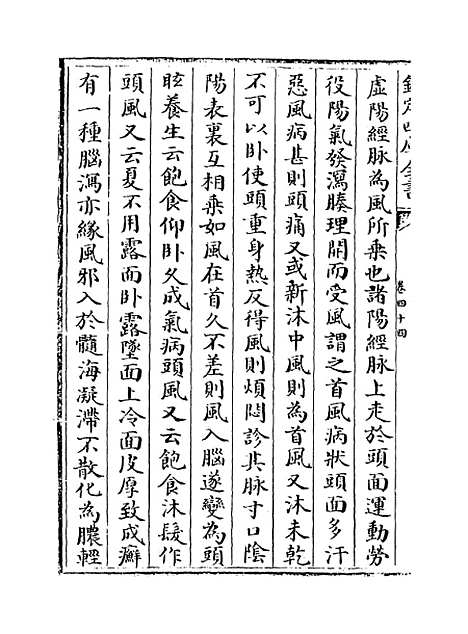 欽定四庫全書
卷四十四
虛陽經脉為風所乗也諸陽經脉上走於頭面運動勞
役陽氣發瀉腠理開而受風謂之首風病狀頭面多汗
惡風病甚則頭痛又或新沐中風則為首風又沐未乾
不可以卧使頭重身熱反得風則煩悶診其脉寸口陰
陽表裏互相乗如風在首久不差則風入腦遂變為頭
眩養生云飽食仰卧久成氣病頭風又云飽食沐髮作
頭風又云夏不用露面卧露墜面上冷面皮厚致成癬
有一種腦瀉亦緣風邪入於髓海凝滯不散化為膿輕